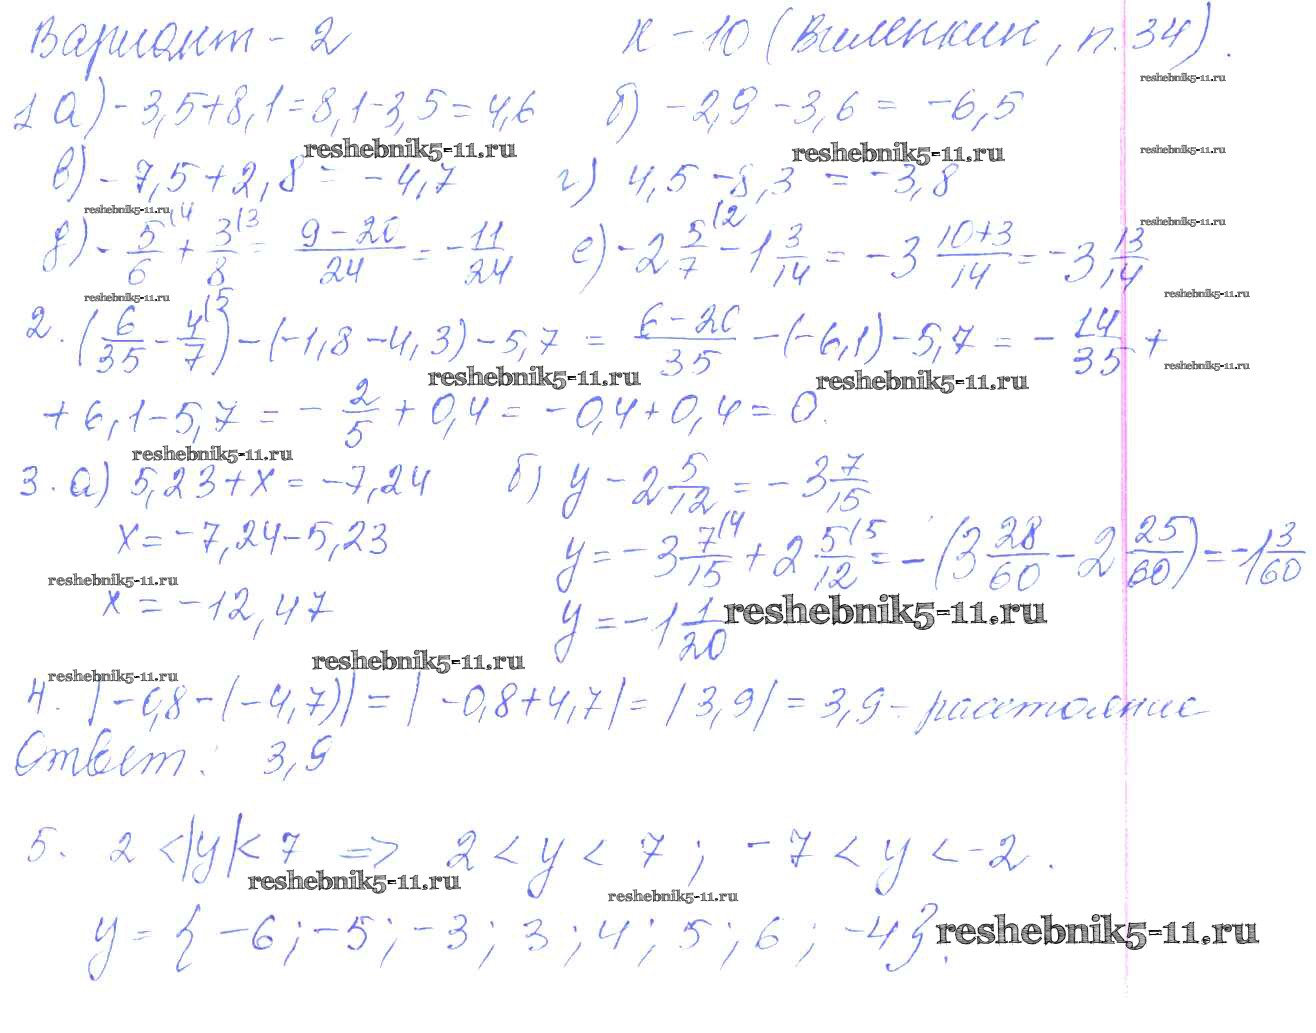 Вариант - 2 К - 10 (Виленкин, п. 34).
reshebnik5-11.ru
1 а) - 3,5 + 8,1 = 8,1 - 3,5 = 4,6 б) - 2,9 - 3,6 = - 6,5
reshebnik5-11.ru reshebnik5-11.ru reshebnik5-11.ru
в) - 7,5 + 2,8 = - 4,7 г) 4,5 - 8,3 = - 3,8
reshebnik5-11.ru reshebnik5-11.ru
д) - 5/6 (4 + 3/8 (3 = (9 - 20)/24 = - 11/24 е) - 2 5/7 (2 - 1 3/14 = - 3 (10+3)/14 = - 3 13/14
reshebnik5-11.ru reshebnik5-11.ru
2. (6/35 - 4/7 (5) - (- 1,8 - 4,3) - 5,7 = (6 - 20)/35 - (- 6,1) - 5,7 = - 14/35 +
reshebnik5-11.ru reshebnik5-11.ru reshebnik5-11.ru
+ 6,1 - 5,7 = - 2/5 + 0,4 = - 0,4 + 0,4 = 0.
reshebnik5-11.ru
3. а) 5,23 + x = - 7,24 б) y - 2 5/12 = - 3 7/15
x = - 7,24 - 5,23 y = - 3 7/15 (4 + 2 5/12 (5 = - (3 28/60 - 2 25/60) = - 1 3/60
reshebnik5-11.ru
x = - 12,47 y = - 1 1/20
reshebnik5-11.ru
reshebnik5-11.ru reshebnik5-11.ru
4. |- 0,8 - (- 4,7)| = | - 0,8 + 4,7| = |3,9| = 3,9 - расстояние
Ответ: 3,9
5. 2 < |y| < 7 => 2 < y < 7 ; - 7 < y < - 2.
reshebnik5-11.ru reshebnik5-11.ru
y = { - 6 ; - 5 ; - 3 ; 3 ; 4 ; 5 ; 6 ; - 4 }.
reshebnik5-11.ru